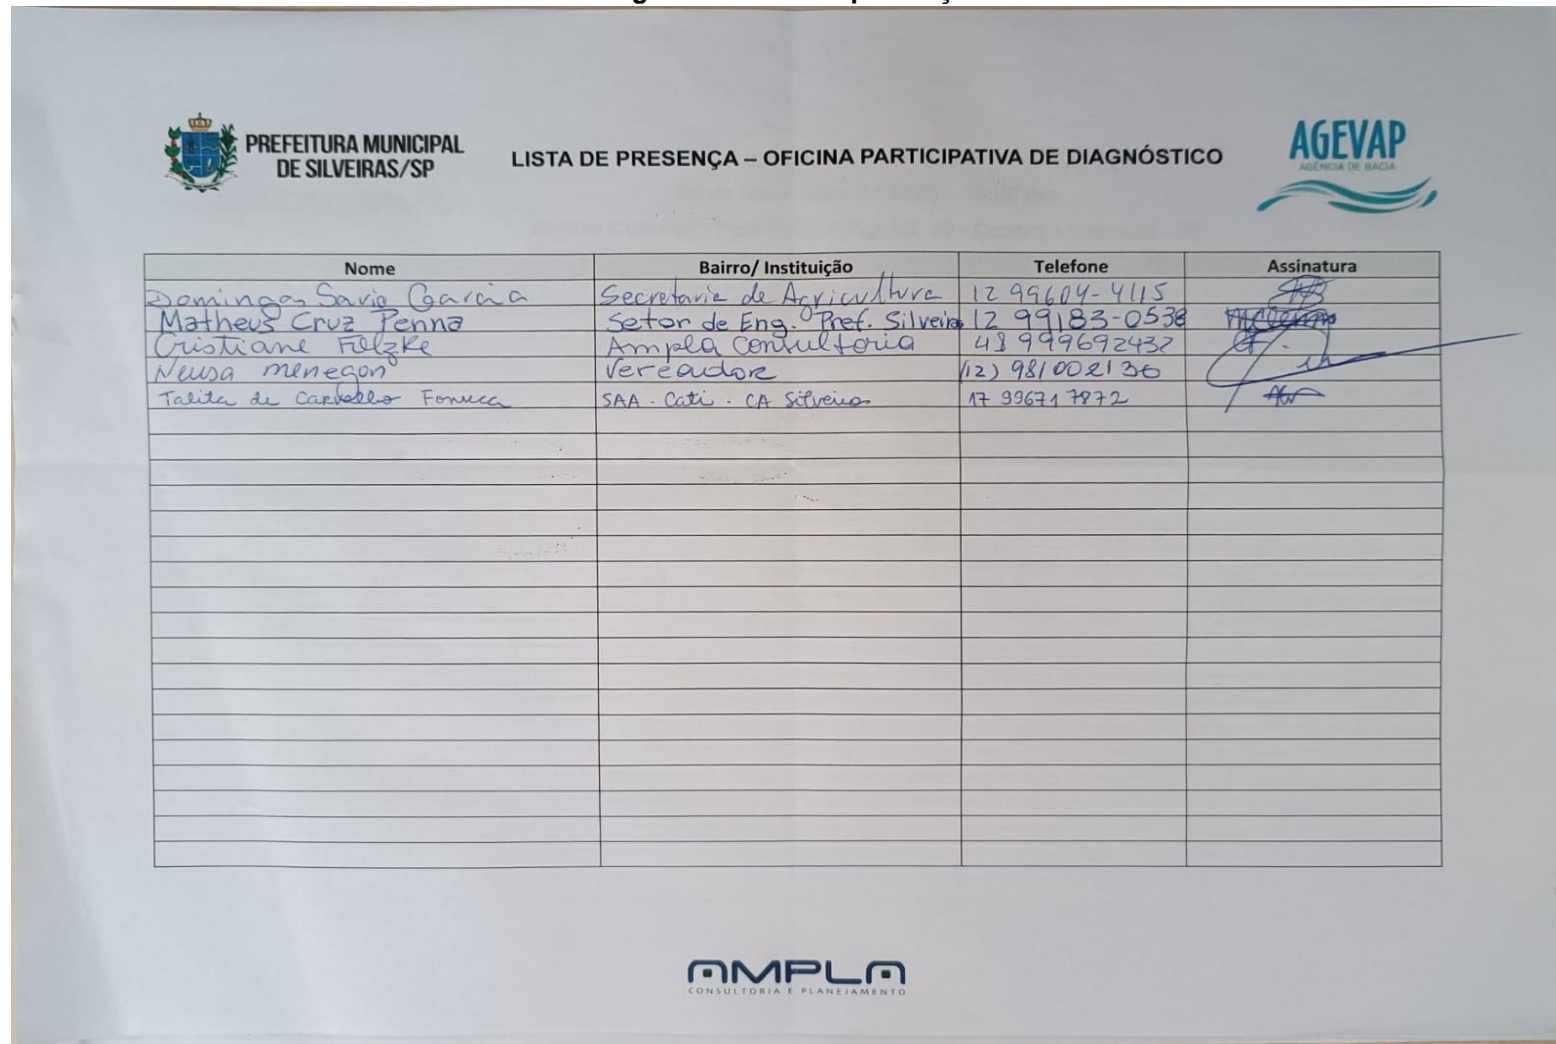 PREFEITURA MUNICIPAL
DE SILVEIRAS/SP
LISTA DE PRESENÇA – OFICINA PARTICIPATIVA DE DIAGNÓSTICO
AGEVAP
AGÊNCIA DE BACIA
Nome Bairro/ Instituição Telefone Assinatura
Domingos Savio Garcia Secretaria de Agricultura 12 99604-4115
Matheus Cruz Penna Setor de Eng.º Pref. Silveiras 12 99183-0538
Cristiane Felzke Ampla Consultoria 48 999692432
Neusa menegon Vereador (12) 981002136
Talita de Carvalho Fonseca SAA - Cati - CA Silveiras 17 99671 7872
AMPLA
CONSULTORIA E PLANEJAMENTO